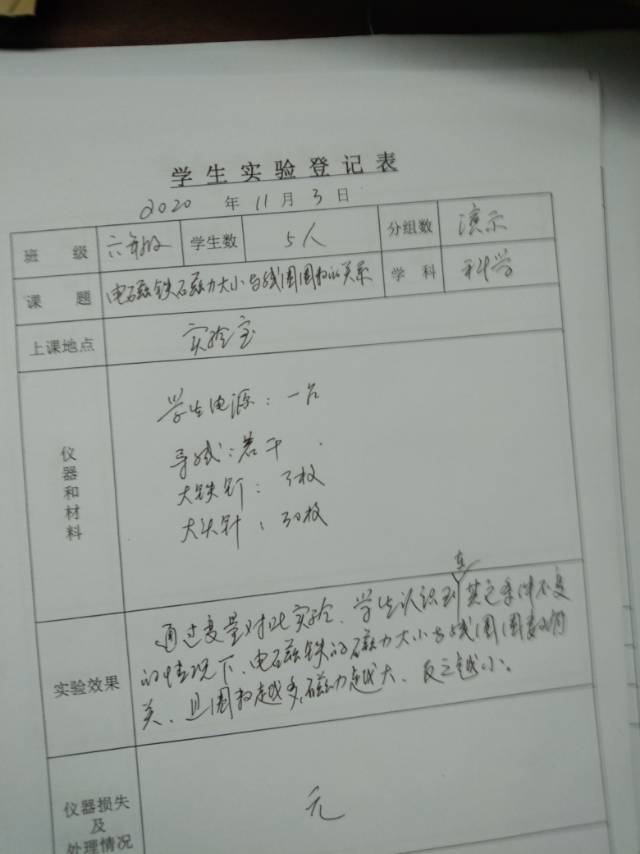 学生实验登记表
2020 年 11 月 3 日
班级 六年级 学生数 5人 分组数 演示
课题 电磁铁磁力大小与线圈圈数的关系 学科 科学
上课地点 实验室
仪器和材料
学生电源：一台
导线：若干
大铁钉：3枚
大头针：30枚
实验效果
通过变量对比实验、学生认识到在其它条件不变
的情况下、电磁铁的磁力大小与线圈圈数的有
关、且圈数越多磁力越大、反之越小。
仪器损失
及
处理情况
无